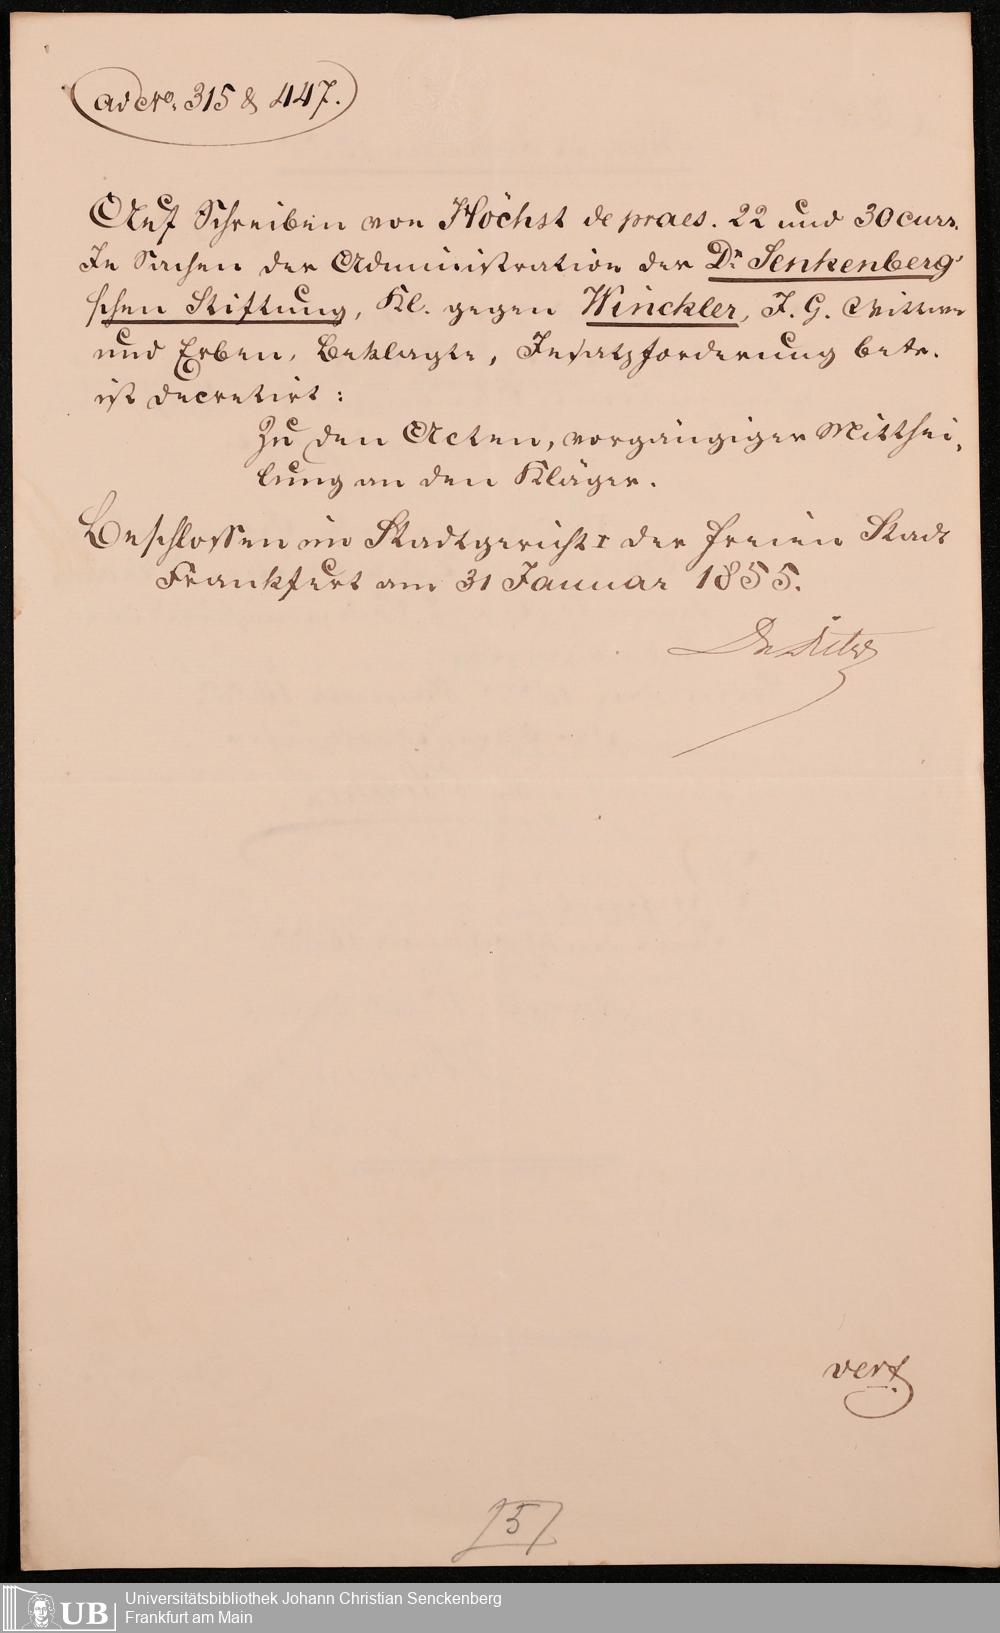 ad No. 315 & 447.
Auf Schreiben von Höchst de praes. 22 und 30 curr.
In Sachen der Administration der Dr. Senkenberg'
schen Stiftung, Kl. gegen Winckler, J. G. Wittwe
und Erben, Beklagte, Insatzforderung betr.
ist decretirt:
Zu den Acten, vorgängiger Mitthei-
lung an den Kläger.
Beschlossen im Stadtgericht I der freien Stadt
Frankfurt am 31 Januar 1855.
Dr
vert.
[5]
Universitätsbibliothek Johann Christian Senckenberg
Frankfurt am Main
UB